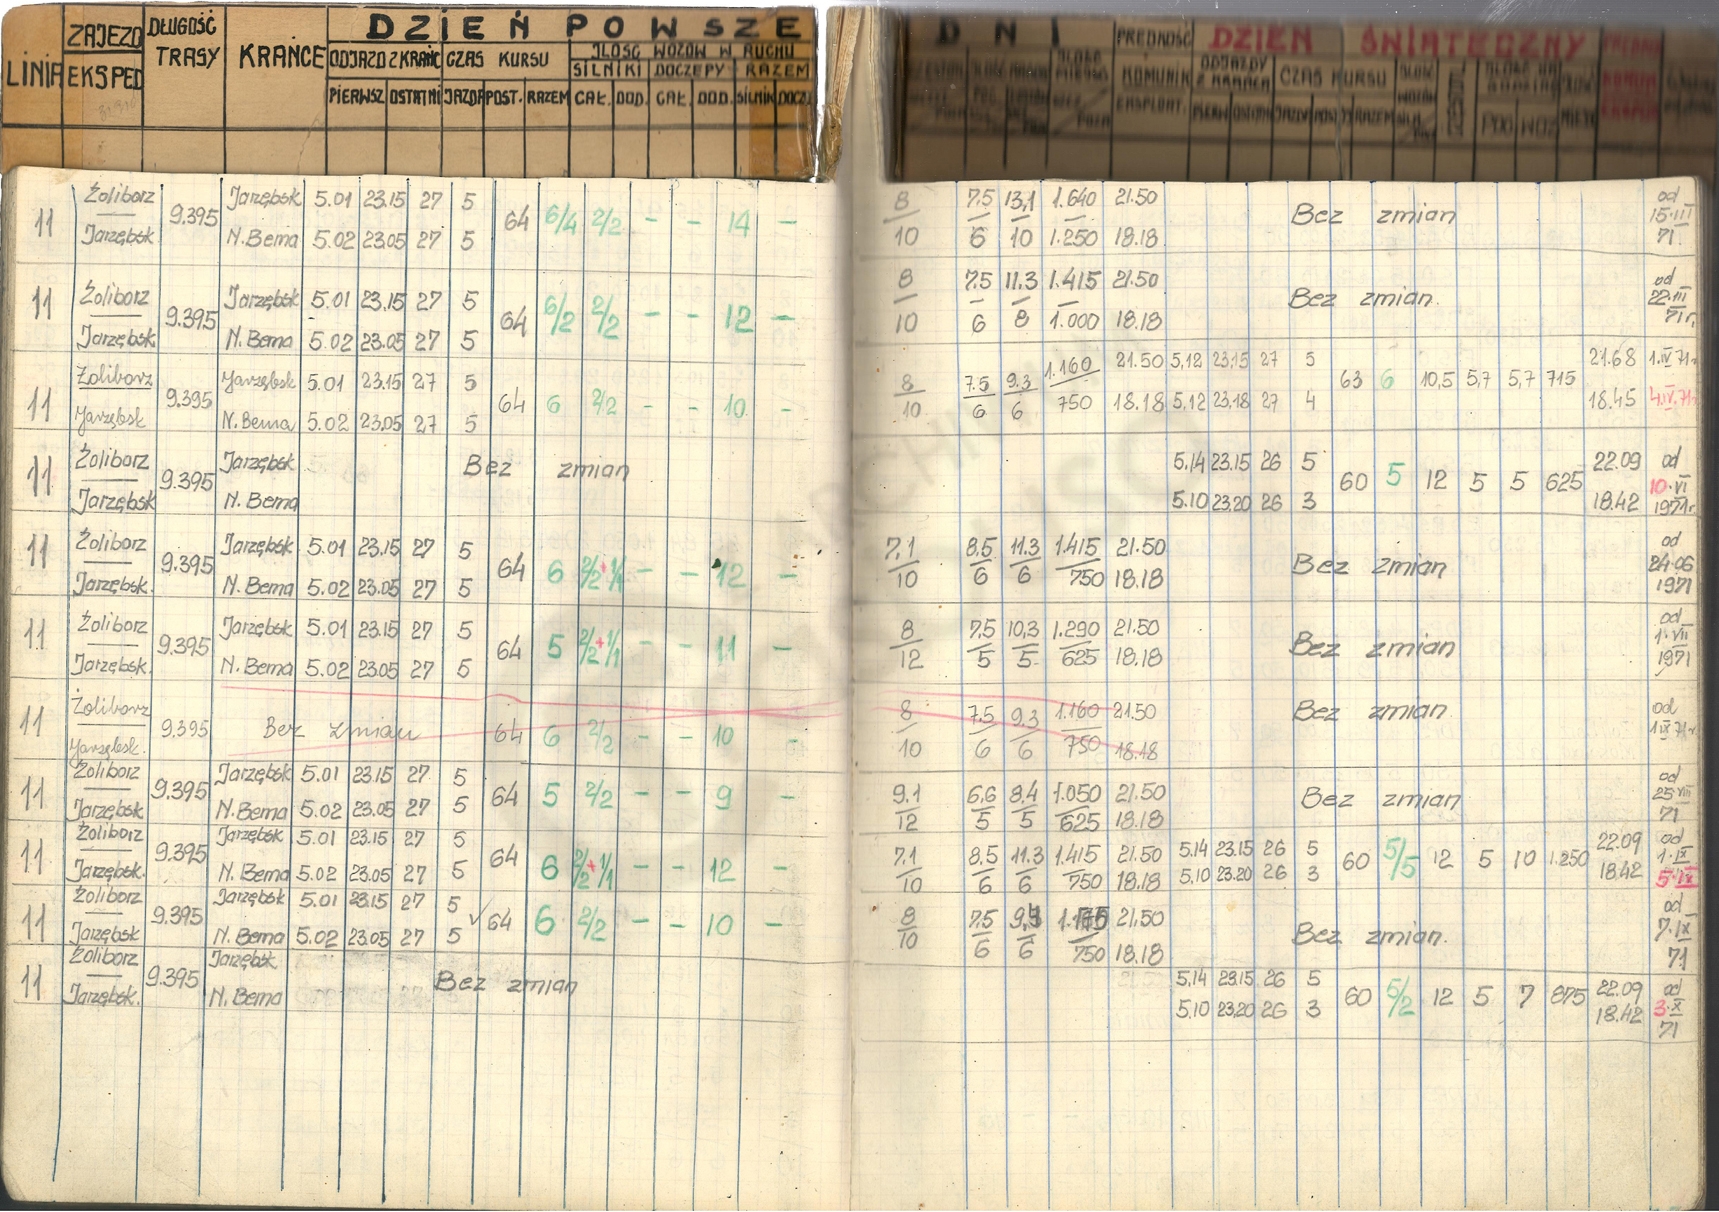 LINIA ZAJEZD EKSPED DŁUGOŚĆ TRASY KRAŃCE
DZIEŃ POWSZE DNI
ODJAZD Z KRAŃC CZAS KURSU ILOŚĆ WOZÓW W RUCHU
SILNIKI DOCZEPY RAZEM
PIERWSZ OSTATNI JAZDA POST. RAZEM CAŁ. DOD. CAŁ. DOD. SILNIK DOCZ.
PRĘDKOŚĆ KOMUNIK EKSPLOAT.
DZIEŃ ŚWIĄTECZNY
ODJAZDY Z KRAŃCA CZAS KURSU
Żoliborz Jarzębsk 5.01 23.15 27 5 8 7.5 13,1 1.640 21.50 od
11 9.395 64 6/4 2/2 - - 14 - Bez zmian 15.III
Jarzębsk N.Bema 5.02 23.05 27 5 10 6 10 1.250 18.18 71.
Żoliborz Jarzębsk 5.01 23.15 27 5 8 7.5 11.3 1.415 21.50 od
11 9.395 64 6/2 2/2 - - 12 - Bez zmian. 22.III
Jarzębsk N.Bema 5.02 23.05 27 5 10 6 8 1.000 18.18 71r.
Żoliborz Jarzębsk 5.01 23.15 27 5 8 7.5 9.3 1.160 21.50 5,12 23,15 27 5 21.68 1.IV.71r.
11 9.395 64 6 2/2 - - 10 - 63 6 10,5 5,7 5,7 715
Jarzębsk N.Bema 5.02 23.05 27 5 10 6 6 750 18.18 5,12 23,18 27 4 18.45 4.IV.71r.
Żoliborz Jarzębsk 5.14 23.15 26 5 22.09 od
11 9.395 Bez zmian 60 5 12 5 5 625 10.VI
Jarzębsk N. Bema 5.10 23.20 26 3 18.42 1971r.
Żoliborz Jarzębsk 5.01 23.15 27 5 7,1 8.5 11.3 1.415 21.50 od
11 9.395 64 6 2/2+1/1 - - 12 - Bez zmian 24.06
Jarzębsk. N. Bema 5.02 23.05 27 5 10 6 6 750 18.18 1971
Żoliborz Jarzębsk 5.01 23.15 27 5 8 7.5 10,3 1.290 21.50 od
11 9.395 64 5 2/2+1/1 - - 11 - Bez zmian 1.VII
Jarzębsk. N. Bema 5.02 23.05 27 5 12 5 5 625 18.18 1971
Żoliborz 8 7.5 9.3 1.160 21.50 Bez zmian od
11 9.395 Bez zmian 64 6 2/2 - - 10 - 1 IX 71r.
Jarzębsk. 10 6 6 750 18.18
Żoliborz Jarzębsk 5.01 23.15 27 5 9.1 6,6 8,4 1.050 21.50 od
11 9.395 64 5 2/2 - - 9 - Bez zmian 25.VIII
Jarzębsk N.Bema 5.02 23.05 27 5 12 5 5 625 18.18 71
Żoliborz Jarzębsk 5.01 23.15 27 5 7.1 8.5 11.3 1.415 21.50 5.14 23.15 26 5 22.09 od
11 9.395 64 6 2/2+1/1 - - 12 - 60 5/5 12 5 10 1.250 1.IX
Jarzębsk. N. Bema 5.02 23.05 27 5 10 6 6 750 18.18 5.10 23.20 26 3 18.42 5.IX
Żoliborz Jarzębsk 5.01 23.15 27 5 8 7.5 21.50 od
11 9.395 64 6 2/2 - - 10 - Bez zmian. 7.IX
Jarzębsk N. Bema 5.02 23.05 27 5 10 6 6 750 18.18 71
Żoliborz Jarzębsk 5,14 23.15 26 5 22.09 od
11 9.395 Bez zmian 60 5/2 12 5 7 875 3.X
Jarzębsk. N. Bema 5,10 23.20 26 3 18.42 71